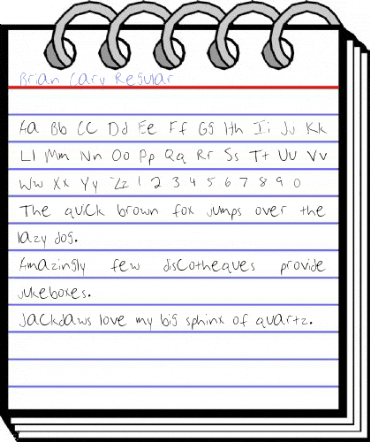 Brian Cary Regular
Aa Bb CC Dd Ee Ff GG Hh Ii JJ Kk
Ll Mm Nn Oo Pp Qq Rr Ss Tt Uu Vv
Ww Xx Yy Zz 1 2 3 4 5 6 7 8 9 0
The quick brown fox jumps over the
lazy dog.
Amazingly few discotheques provide
jukeboxes.
Jackdaws love my big sphinx of quartz.